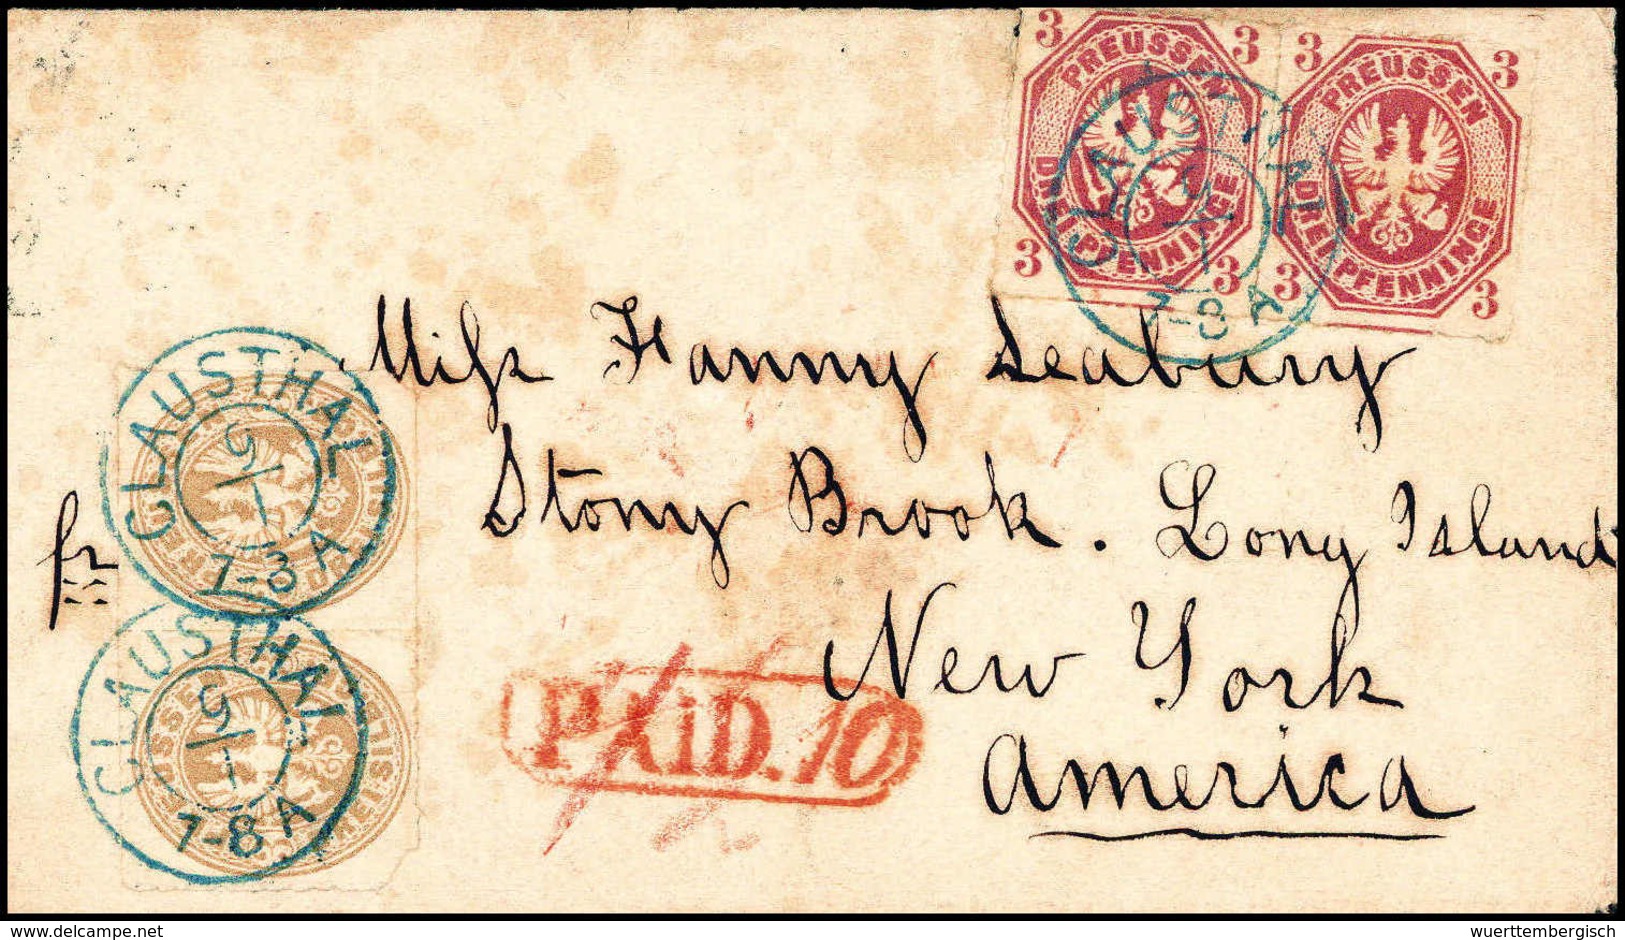 3 3 3 3
PREUSSEN PREUSSEN
DREI PFENNINGE DREI PFENNINGE
3 3 3 3
CLAUSTHAL
7-8 A
Miss Fanny Seabury
Stony Brook. Long Island
New York
America
fr
CLAUSTHAL
9/1
7-8 A
CLAUSTHAL
9/1
7-8 A
PAID. 10
www.delcampe.net
wuerttembergisch